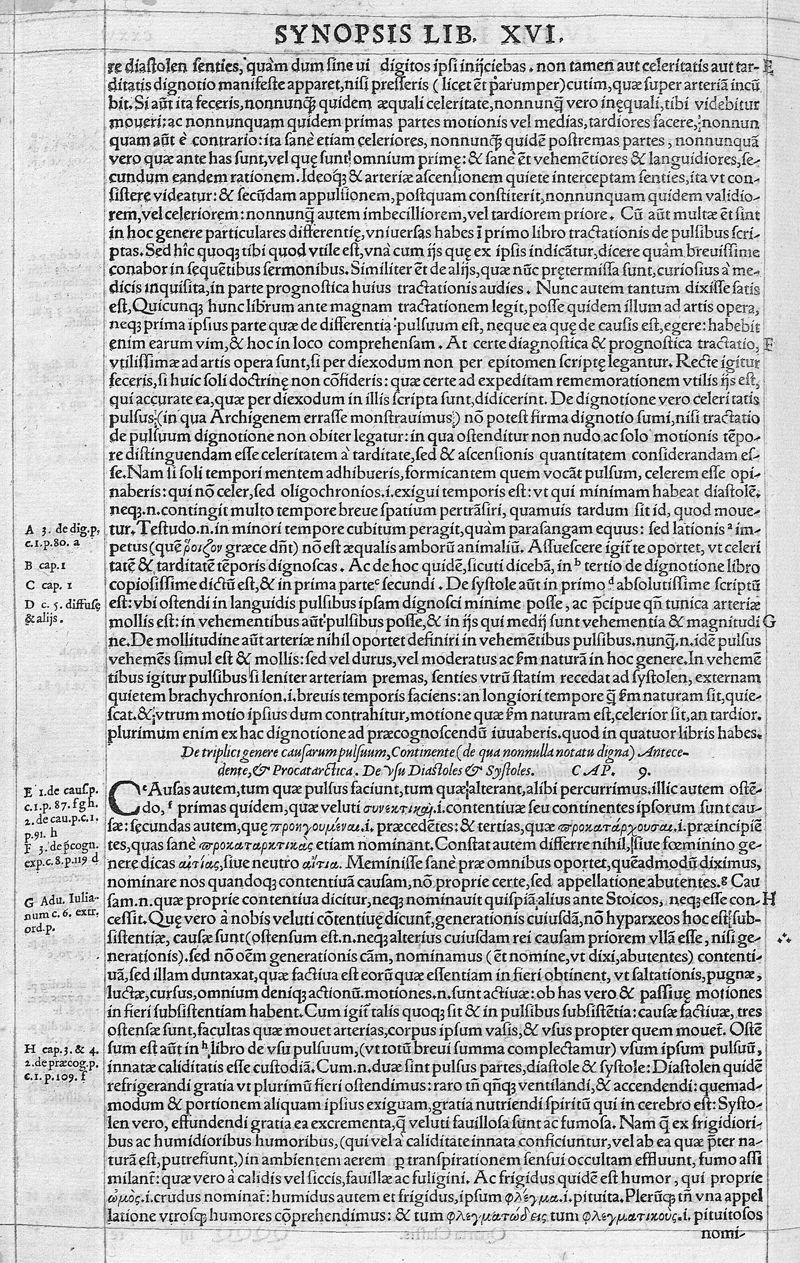 SYNOPSIS LIB. XVI.
re diastolen senties, quàm dum sine ui digitos ipsi inijciebas. non tamen aut celeritatis aut tar- E
ditatis dignotio manifeste apparet, nisi presseris ( licet ēt parumper) cutim, quæ super arteriā incū
bit. Si aūt ita feceris, nonnunq̃ quidem æquali celeritate, nonnunq̃ vero inęquali, tibi videbitur
moueri: ac nonnunquam quidem primas partes motionis vel medias, tardiores facere, nonnun
quam aūt è contrario: ita sanè etiam celeriores, nonnunq̃ quidē postremas partes, nonnunquā
vero quæ ante has sunt, vel quę sunt omnium primę: & sanè ēt vehemētiores & languidiores, se-
cundum eandem rationem. Ideoq; & arteriæ ascensionem quiete interceptam senties, ita vt con-
sistere videatur: & secūdam appulsionem, postquam constiterit, nonnunquam quidem validio-
rem, vel celeriorem: nonnunq̃ autem imbecilliorem, vel tardiorem priore. Cū aūt multæ ēt sint
in hoc genere particulares differentię, vniuersas habes ī primo libro tractationis de pulsibus scri-
ptas. Sed hîc quoq; tibi quod vtile est, vnà cum ijs quę ex ipsis indicātur, dicere quàm breuissime
conabor in sequētibus sermonibus. Similiter ēt de alijs, quæ nūc prętermissa sunt, curiosius à me-
dicis inquisita, in parte prognostica huius tractationis audies. Nunc autem tantum dixisse satis
est, Quicunq; hunc librum ante magnam tractationem legit, posse quidem illum ad artis opera,
neq; prima ipsius parte quæ de differentia pulsuum est, neque ea quę de causis est, egere: habebit
enim earum vim, & hoc in loco comprehensam. At certe diagnostica & prognostica tractatio, F
vtilissimæ ad artis opera sunt, si per diexodum non per epitomen scriptę legantur. Recte igitur
feceris, si huic soli doctrinę non cōfideris: quæ certe ad expeditam rememorationem vtilis ijs est,
qui accurate ea, quæ per diexodum in illis scripta sunt, didicerint. De dignotione vero celeritatis
pulsus, (in qua Archigenem errasse monstrauimus) nō potest firma dignotio sumi, nisi tractatio
de pulsuum dignotione non obiter legatur: in qua ostenditur non nudo ac solo motionis tēpo-
re distinguendam esse celeritatem à tarditate, sed & ascensionis quantitatem considerandam es-
se. Nam si soli tempori mentem adhibueris, formicantem quem vocāt pulsum, celerem esse opi-
naberis: qui nō celer, sed oligochronios .i. exigui temporis est: vt qui minimam habeat diastolē.
neq; .n. contingit multo tempore breue spatium pertrāsiri, quamuis tardum sit id, quod moue-
tur. Testudo .n. in minori tempore cubitum peragit, quàm parasangam equus: sed lationis a im-
petus (quē ῥοῖζον græce dñt) nō est æqualis amborū animaliū. Assuescere igiť te oportet, vt celeri
tatē & tarditatē tēporis dignoscas. Ac de hoc quidē, sicuti dicebā, in b tertio de dignotione libro
copiosissime dictū est, & in prima parte c secundi. De systole aūt in primo d absolutissime scriptū
est: vbi ostendi in languidis pulsibus ipsam dignosci minime posse, ac p̃cipue qñ tunica arteriæ
mollis est: in vehementibus aūt pulsibus posse, & in ijs qui medij sunt vehementia & magnitudi G
ne. De mollitudine aūt arteriæ nihil oportet definiri in vehemētibus pulsibus. nunq̃ .n. idē pulsus
vehemēs simul est & mollis: sed vel durus, vel moderatus ac s̃m naturā in hoc genere. In vehemē
tibus igitur pulsibus si leniter arteriam premas, senties vtrū statim recedat ad systolen, externam
quietem brachychronion .i. breuis temporis faciens: an longiori tempore q̃ s̃m naturam sit, quie-
scat. & vtrum motio ipsius dum contrahitur, motione quæ s̃m naturam est, celerior sit, an tardior.
plurimum enim ex hac dignotione ad præcognoscendū iuuaberis. quod in quatuor libris habes.
De triplici genere causarum pulsuum, Continente (de qua nonnulla notatu digna) Antece-
dente, & Procatarctica. De vsu Diastoles & Systoles. CAP. 9.
C e Ausas autem, tum quæ pulsus faciunt, tum quæ alterant, alibi percurrimus. illic autem ostē-
do, f primas quidem, quæ veluti συνεκτικαὶ .i. contentiuæ seu continentes ipsorum sunt cau-
sæ: secundas autem, quę προηγουμέναι .i. præcedētes: & tertias, quæ προκατάρχουσαι .i. præincipiē
tes, quas sanè προκαταρκτικὰς etiam nominant. Constat autem differre nihil, siue fœminino ge-
nere dicas αἰτίας, siue neutro αἴτια. Meminisse sanè præ omnibus oportet, quēadmodū diximus,
nominare nos quandoq; contentiuā causam, nō proprie certe, sed appellatione abutentes. g Cau
sam .n. quæ proprie contentiua dicitur, neq; nominauit quispiā alius ante Stoicos, neq; esse con- H
cessit. Quę vero à nobis veluti cōtentiuę dicunt̃, generationis cuiusdā, nō hyparxeos hoc est sub-
sistentiæ, causæ sunt (ostensum est .n. neq; alterius cuiusdam rei causam priorem vllā esse, nisi ge-
nerationis). sed nō oēm generationis cām, nominamus (ēt nomine, vt dixi, abutentes) contenti-
uā, sed illam duntaxat, quæ factiua est eorū quæ essentiam in fieri obtinent, vt saltationis, pugnæ,
luctæ, cursus, omnium deniq; actionū. motiones .n. sunt actiuæ: ob has vero & passiuę motiones
in fieri subsistentiam habent. Cum igiť talis quoq; sit & in pulsibus subsistētia: causæ factiuæ, tres
ostensæ sunt, facultas quæ mouet arterias, corpus ipsum vasis, & vsus propter quem mouet̃. Ostē
sum est aūt in h libro de vsu pulsuum, (vt totū breui summa complectamur) vsum ipsum pulsuū,
innatæ caliditatis esse custodiā. Cum .n. duæ sint pulsus partes, diastole & systole: Diastolen quidē
refrigerandi gratia vt plurimū fieri ostendimus: raro tñ qñq; ventilandi, & accendendi: quemad-
modum & portionem aliquam ipsius exiguam, gratia nutriendi spiritū qui in cerebro est: Systo-
len vero, effundendi gratia ea excrementa, q̃ veluti fauillosa sunt ac fumosa. Nam q̃ ex frigidiori-
bus ac humidioribus humoribus, (qui vel à caliditate innata conficiuntur, vel ab ea quæ p̃ter na-
turā est, putrefiunt,) in ambientem aerem p transpirationem sensui occultam effluunt, fumo assi
milant̃: quæ vero à calidis vel siccis, fauillæ ac fuligini. Ac frigidus quidē est humor, qui proprie
ὠμὸς .i. crudus nominat̃: humidus autem et frigidus, ipsum φλέγμα .i. pituita. Plerūq; tñ vna appel
latione vtrosq; humores cōprehendimus: & tum φλεγματώδεις tum φλεγματικοὺς .i. pituitosos
nomi-
A 3. de dig. p.
c. 1. p. 80. a
B cap. 1
C cap. 1
D c. 5. diffusę
& alijs.
E 1. de caus p.
c. 1. p. 87. f g h.
2. de cau. p. c. 1.
p. 91. h
F 3. de p̃cogn.
exp. c. 8. p. 119 d
G Adu. Iulia-
num c. 6. extr.
ord. p.
H cap. 3. & 4.
2. de præcog. p.
c. 1. p. 109. f